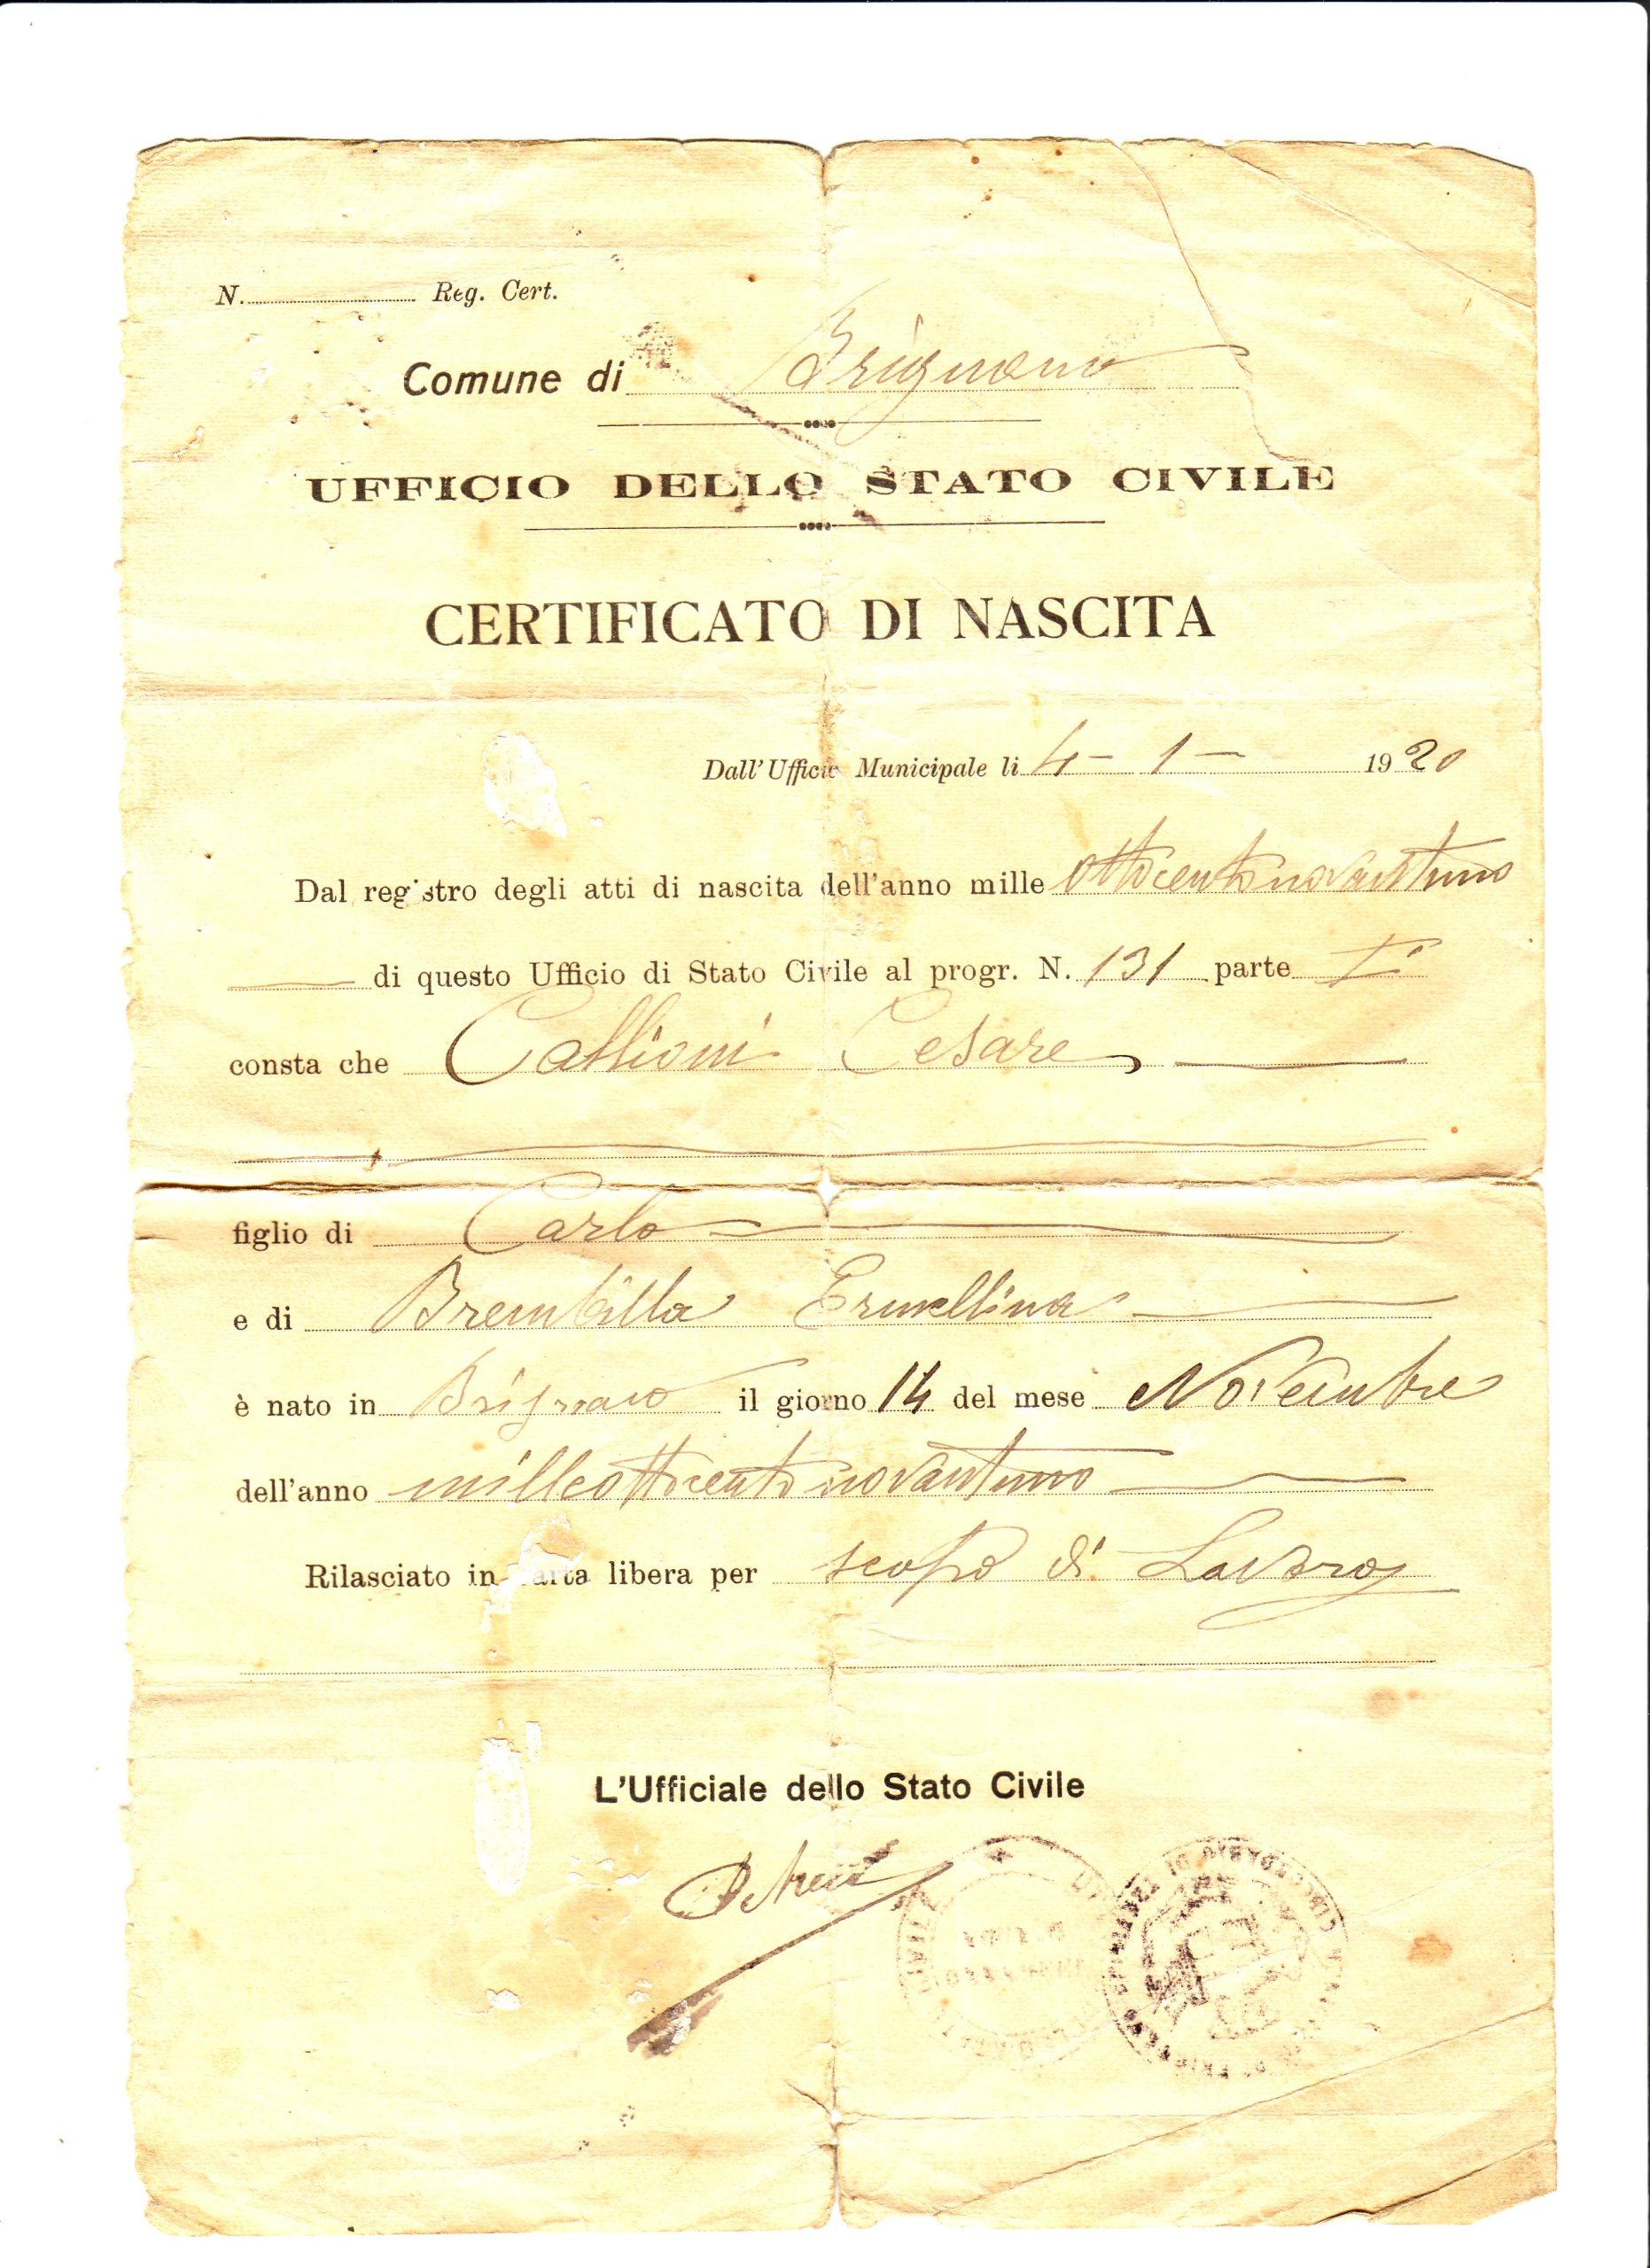 N. Reg. Cert.
Comune di Brignano
UFFICIO DELLO STATO CIVILE
CERTIFICATO DI NASCITA
Dall'Ufficio Municipale li 4 - 1 - 1920
Dal registro degli atti di nascita dell'anno mille ottocentonovantuno
di questo Ufficio di Stato Civile al progr. N. 131 parte I
consta che Callioni Cesare
figlio di Carlo
e di Brembilla Ermellina
è nato in Brignano il giorno 14 del mese Novembre
dell'anno milleottocentonovantuno
Rilasciato in carta libera per scopo di Lavoro
L'Ufficiale dello Stato Civile